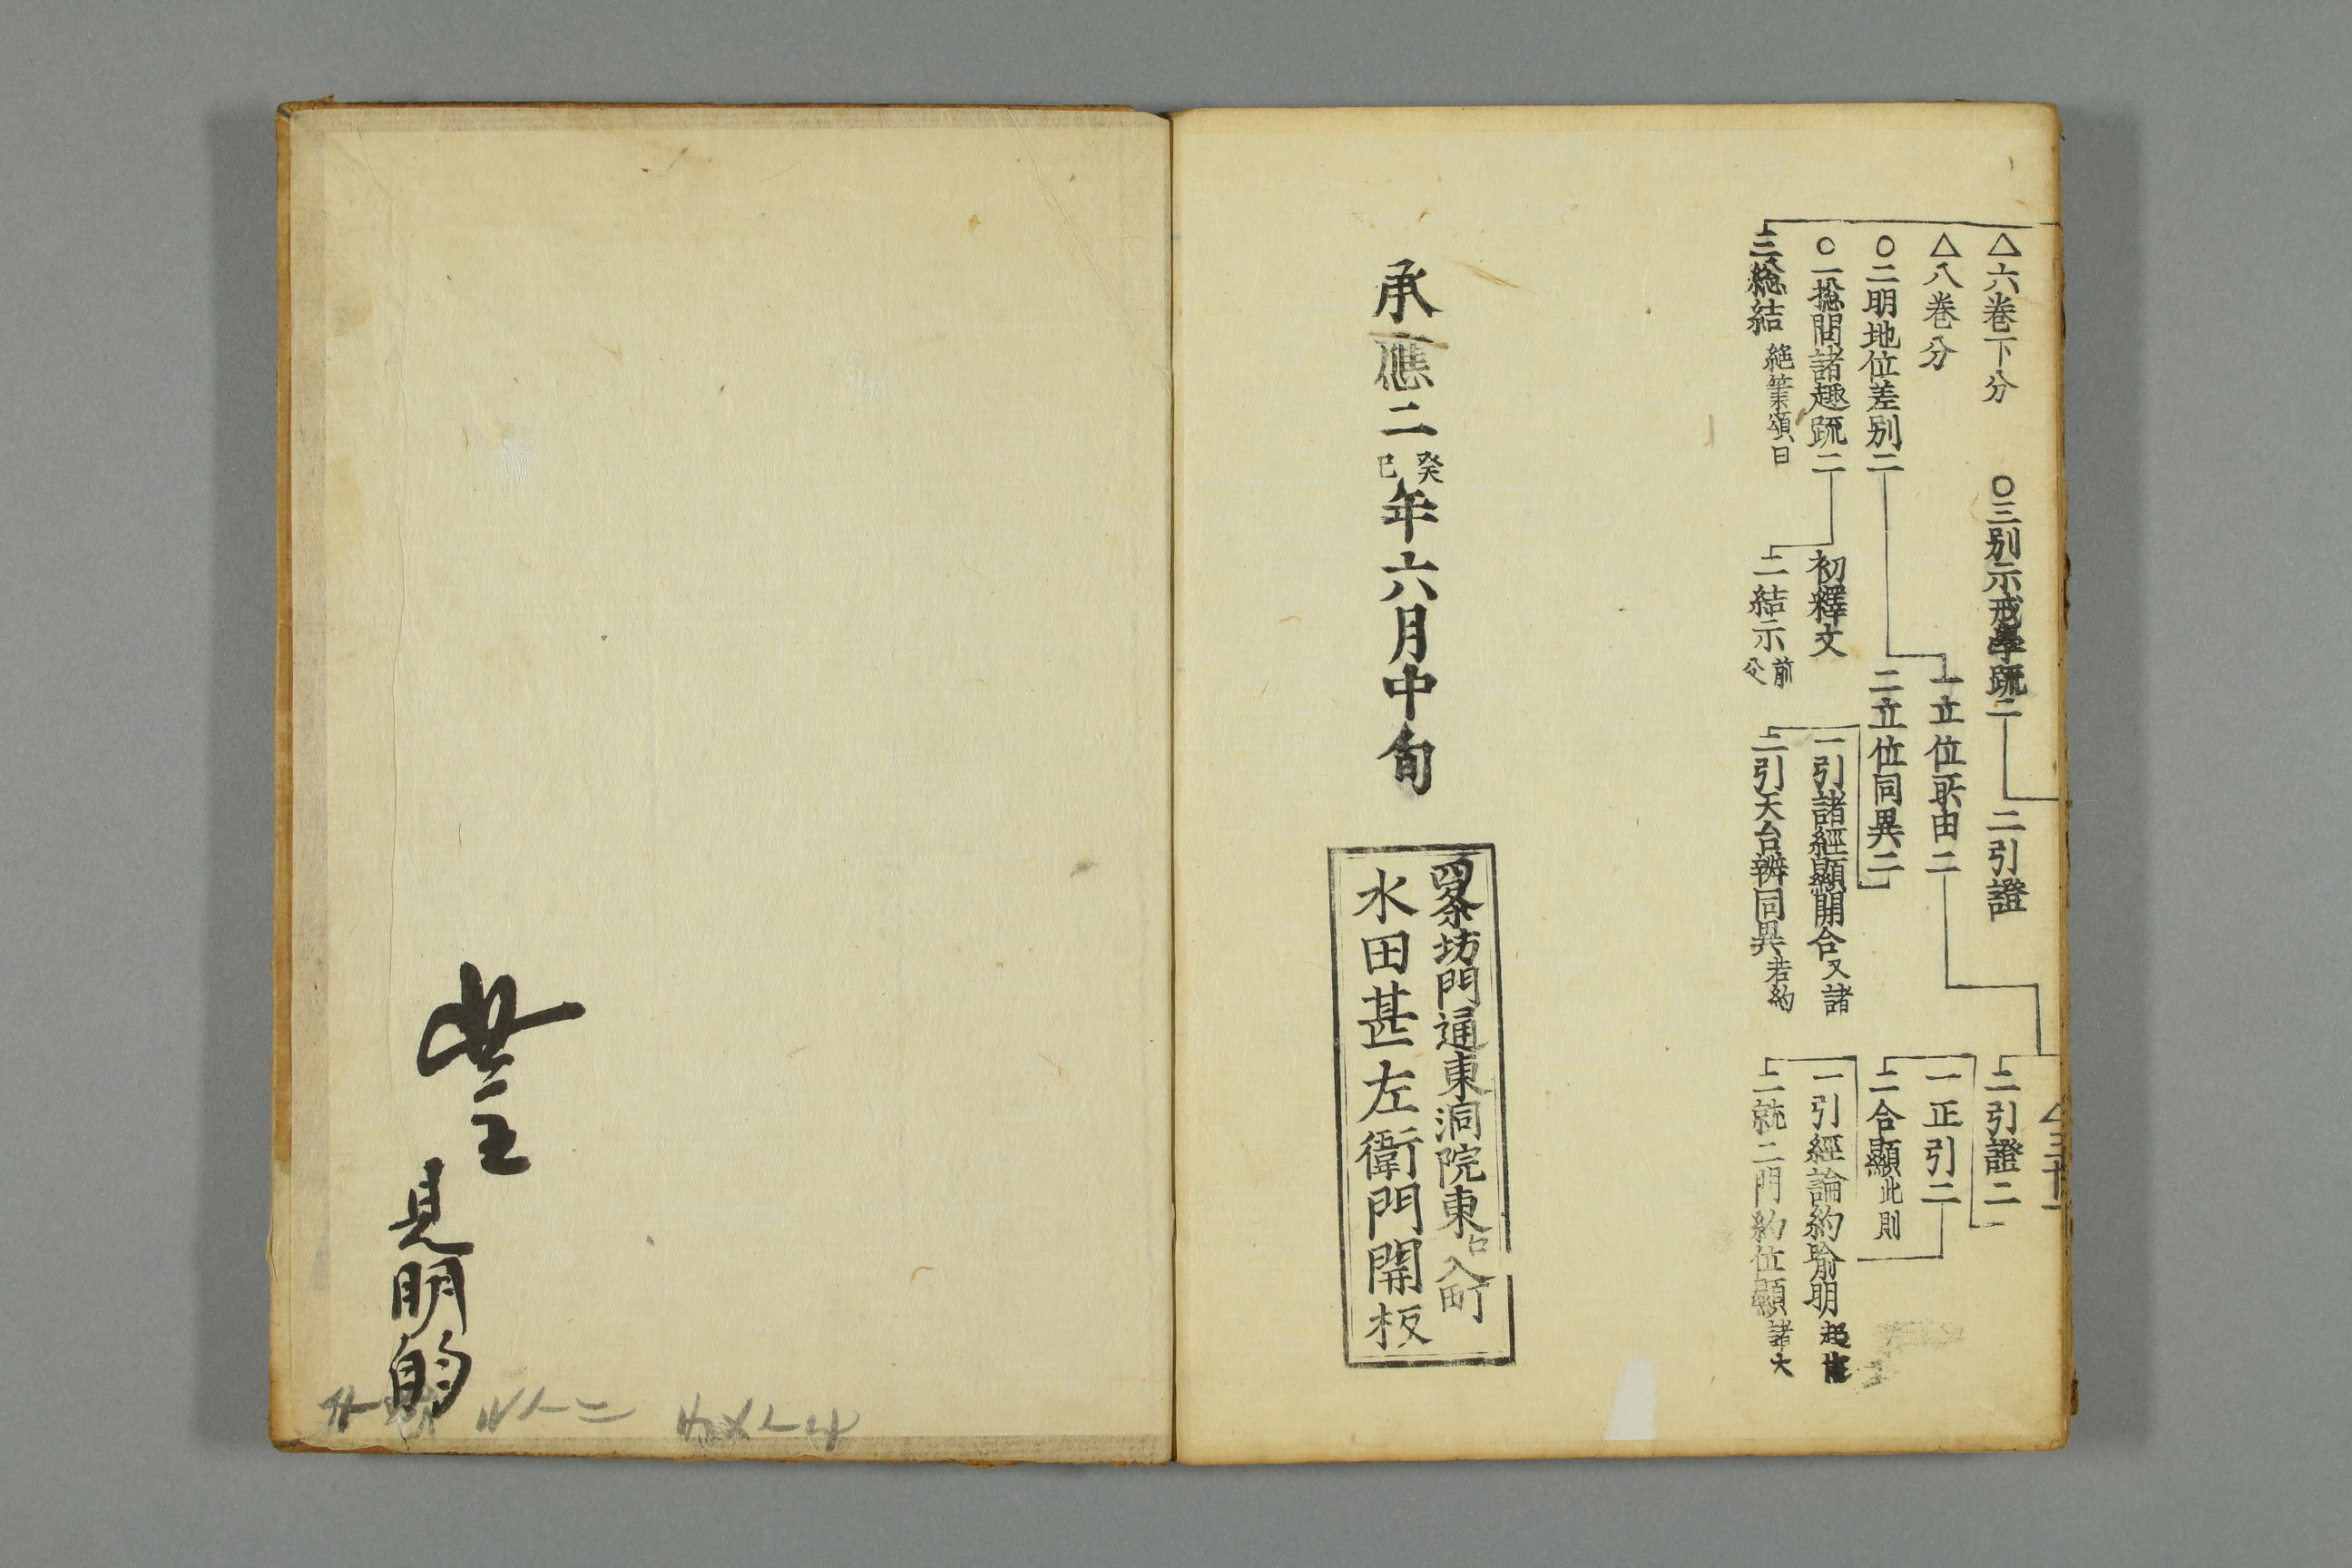 △六巻下分
○三別示戒學䟽二
二引證
二引證二
△八巻分
一立位所由二
一正引二
○二明地位差別二
二立位同異二
二合顯此則
○一揔問諸趣䟽二
初釋文
一引諸經顯開合又諸
一引經論約喩明
三總結 絶筆頌曰
二結示前
二引天台辨同異若約
二就二門約位顯諸大
承應二癸巳年六月中旬
四条坊門通東洞院東入町
水田甚左衛門開板
主
見明的